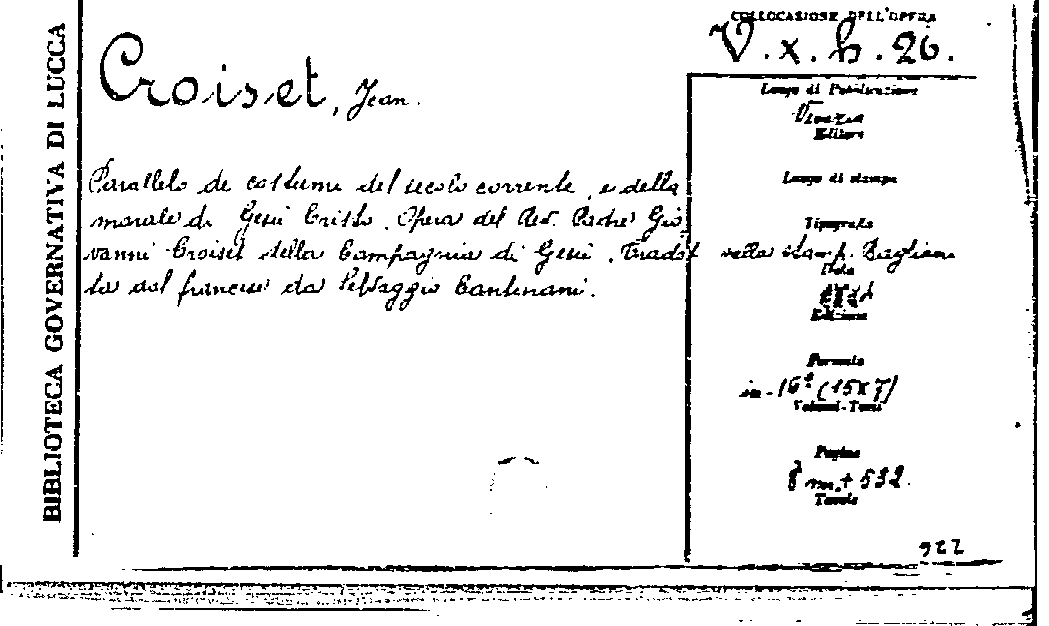 BIBLIOTECA GOVERNATIVA DI LUCCA
COLLOCASIONE DELL'OPERA
V. x. h. 26.
Croiset, Jean.
Luogo di Pubblicazione
Venezia
Editore
Luogo di stampa
Tipografia
nella stamp. Baglioni
Data
Edizione
Formato
in-16º (15x7)
Volumi-Tomi
Pagine
8 m. + 532.
Tavole
Parallelo de costumi del secolo corrente, e della
morale di Gesù Cristo. Opera del Rev. Padre Gio
vanni Croiset della Compagnia di Gesù. Tradot
ta dal francese da Selvaggio Canturani.
922